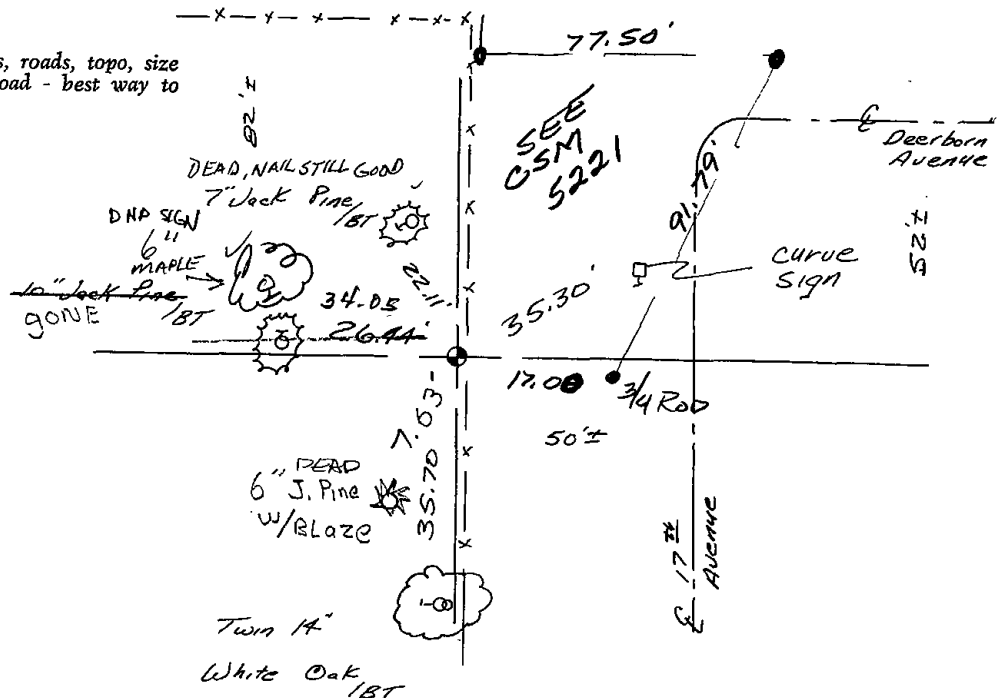 s, roads, topo, size
oad - best way to
77.50'
82'±
SEE
CSM
5221
℄
Deerborn
Avenue
DEAD, NAIL STILL GOOD
7" Jack Pine
/BT
91.79'
52'±
DNR SIGN
6"
MAPLE
10" Jack Pine
/BT
GONE
22.11'
34.05
26.44'
35.30'
curve
sign
17.00
3/4 Rod
50'±
7.63'
35.70
DEAD
6" J. Pine
W/BLAZE
℄ 17th
Avenue
Twin 14"
White Oak
/BT